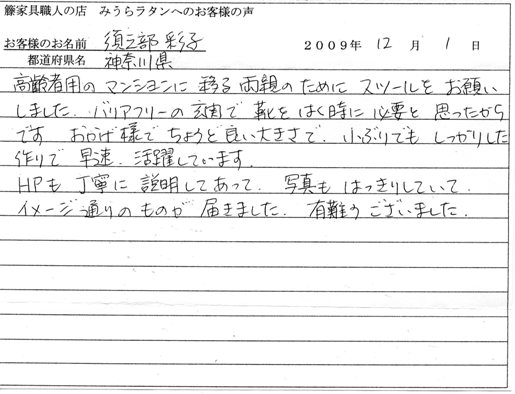 籐家具職人の店 みうらラタンへのお客様の声
お客様のお名前 須之部 彩子 2009年 12 月 1 日
都道府県名 神奈川県
高齢者用の マンションに 移る 両親の ために スツールを お願い
しました. バリアフリーの 玄関で 靴を はく時に 必要と 思ったから
です. おかげ様で ちょうど 良い大きさで. 小ぶりでも しっかりした
作りで 早速. 活躍しています.
HPも 丁寧に 説明してあって. 写真も はっきりしていて.
イメージ通りのものが 届きました. 有難うございました.